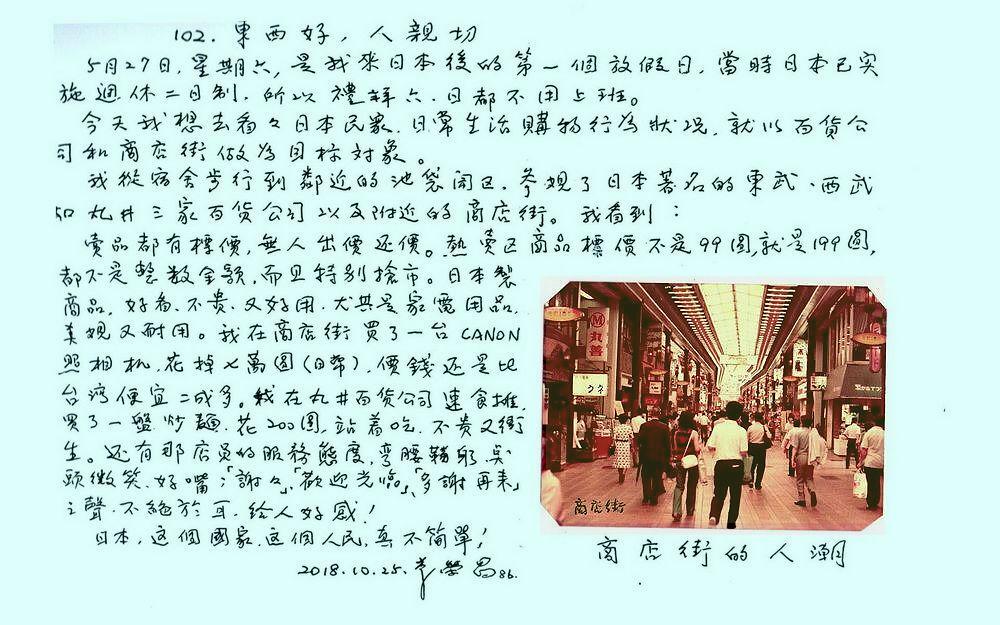 102. 東西好，人親切
5月27日，星期六，是我來日本後的第一個放假日，當時日本已實
施週休二日制，所以禮拜六、日都不用上班。
今天我想去看々日本民眾、日常生活購物行為狀況，就以百貨公
司和商店街做為目標對象。
我從宿舍步行到鄰近的池袋鬧區，參觀了日本著名的東武、西武
和丸井三家百貨公司以及附近的商店街。我看到：
賣品都有標價，無人出價还價。熱賣區商品標價不是99圓，就是199圓，
都不是整數金額，而且特別搶市。日本製
商品，好看、不貴、又好用，尤其是家電用品，
美觀又耐用。我在商店街買了一台CANON
照相机，花掉七萬圓(日幣)，價錢还是比
台灣便宜二成多。我在丸井百貨公司速食攤，
買了一盤炒麵，花200圓，站着吃，不貴又衛
生。还有那店員的服務態度，彎腰鞠躬，点
頭微笑，好嘴：「謝々」「歡迎光臨」「多謝再來」
之聲，不絕於耳，給人好感！
日本，这個國家，这個人民，真不简單！
2018.10.25. 昌86.
丸善
商店街
商店街的人潮